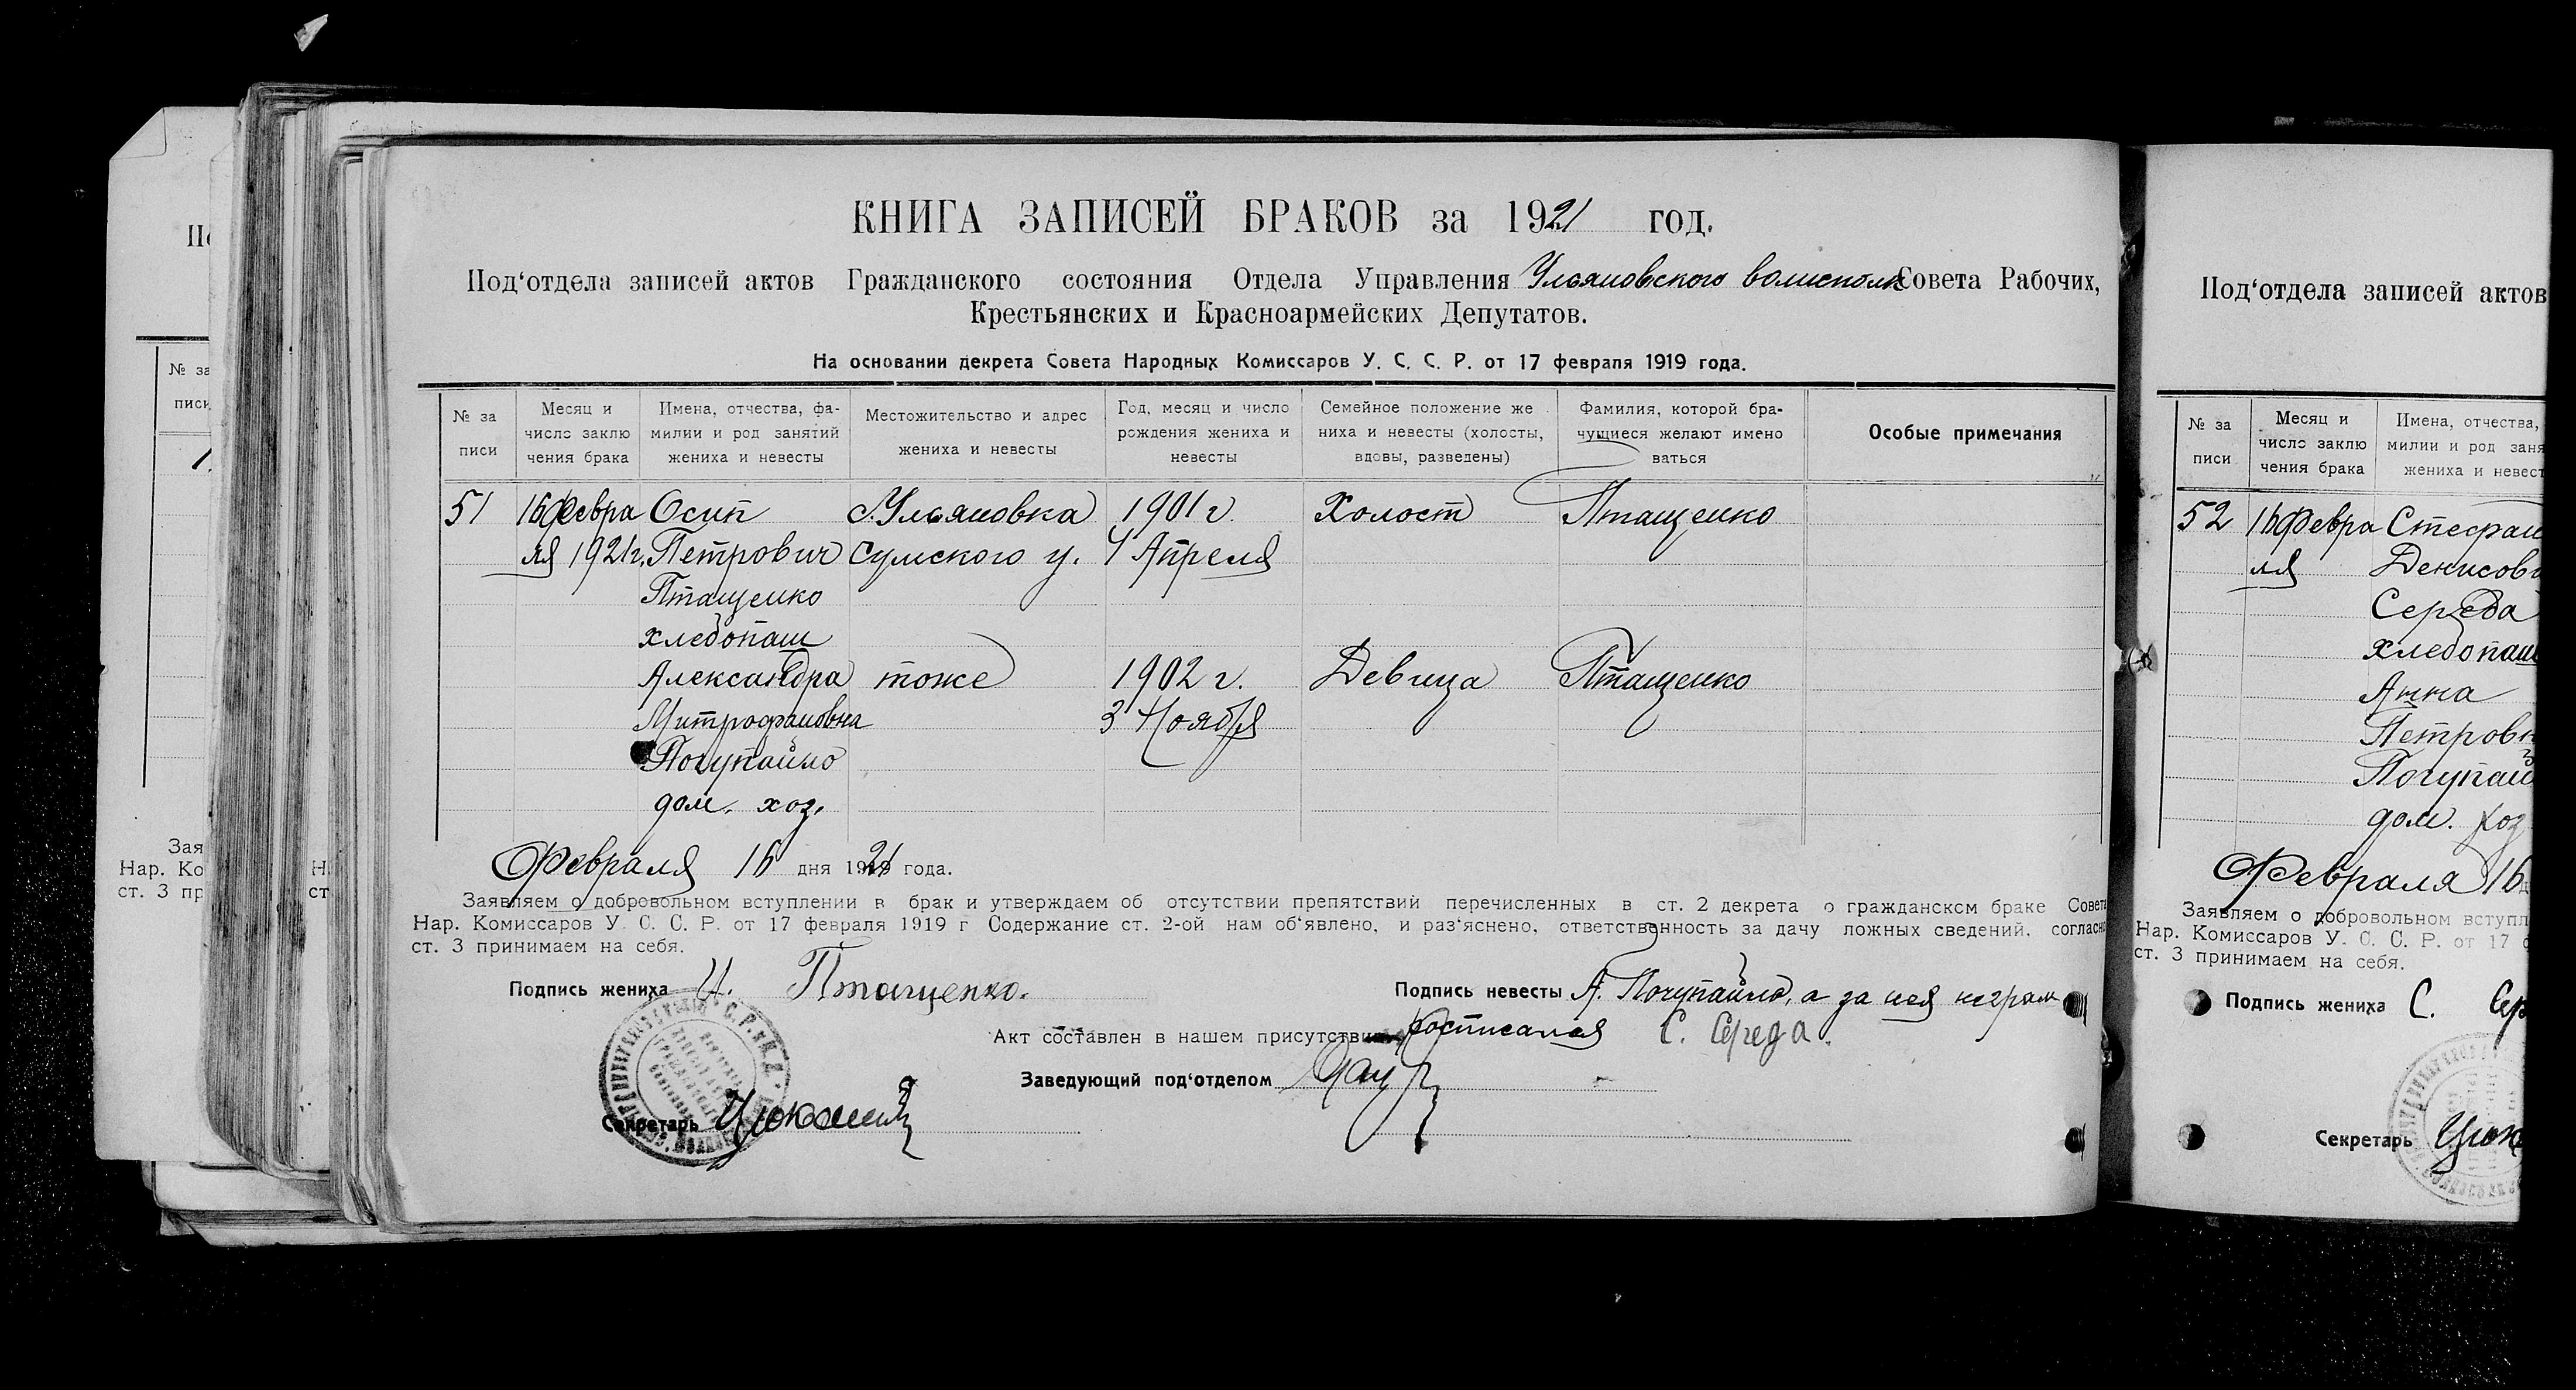 КНИГА ЗАПИСЕЙ БРАКОВ за 1921 год.
Под‘отдела записей актов Гражданского состояния Отдела Управления Ульяновского волисполк Совета Рабочих,
Крестьянских и Красноармейских Депутатов.
На основании декрета Совета Народных Комиссаров У. С. С. Р. от 17 февраля 1919 года.
№ за
писи
Месяц и
число заклю
чения брака
Имена, отчества, фа-
милии и род занятий
жениха и невесты
Местожительство и адрес
жениха и невесты
Год, месяц и число
рождения жениха и
невесты
Семейное положение же
ниха и невесты (холосты,
вдовы, разведены)
Фамилия, которой бра-
чущиеся желают имено
ваться
Особые примечания
51 16 Февра Осип с. Ульяновка 1901 г. Холост Птащенко
ля 1921 г. Петрович Сумского у. 4 Апреля
Птащенко
хлебопаш
Александра тоже 1902 г. Девица Птащенко
Митрофановна 3 Ноября
Почупайло
дом. хоз.
Февраля 16 дня 1921 года.
Заявляем о добровольном вступлении в брак и утверждаем об отсутствии препятствий перечисленных в ст. 2 декрета о гражданском браке Совета
Нар. Комиссаров У. С. С. Р. от 17 февраля 1919 г Содержание ст. 2-ой нам об‘явлено, и раз‘яснено, ответственность за дачу ложных сведений, согласно
ст. 3 принимаем на себя.
Подпись жениха И. Птащенко.
Подпись невесты А. Почупайло, а за нея неграм
Акт составлен в нашем присутствии росписался С. Середа.
Заведующий под‘отделом
Секретарь
№ за
писи
Под‘отдела записей актов
№ за
писи
Месяц и
число заклю
чения брака
Имена, отчества,
милии и род заня
жениха и невест
52 16 Февра Стефан
ля Денисови
Середа
хлебопаш
Анна
Петровн
Почупай
дом. хоз
Февраля 16
Заявляем о добровольном вступл
Нар. Комиссаров У. С. С. Р. от 17 ф
ст. 3 принимаем на себя.
Подпись жениха С. Сер
Секретарь
Зая
Нар. Ко
ст. 3 пр